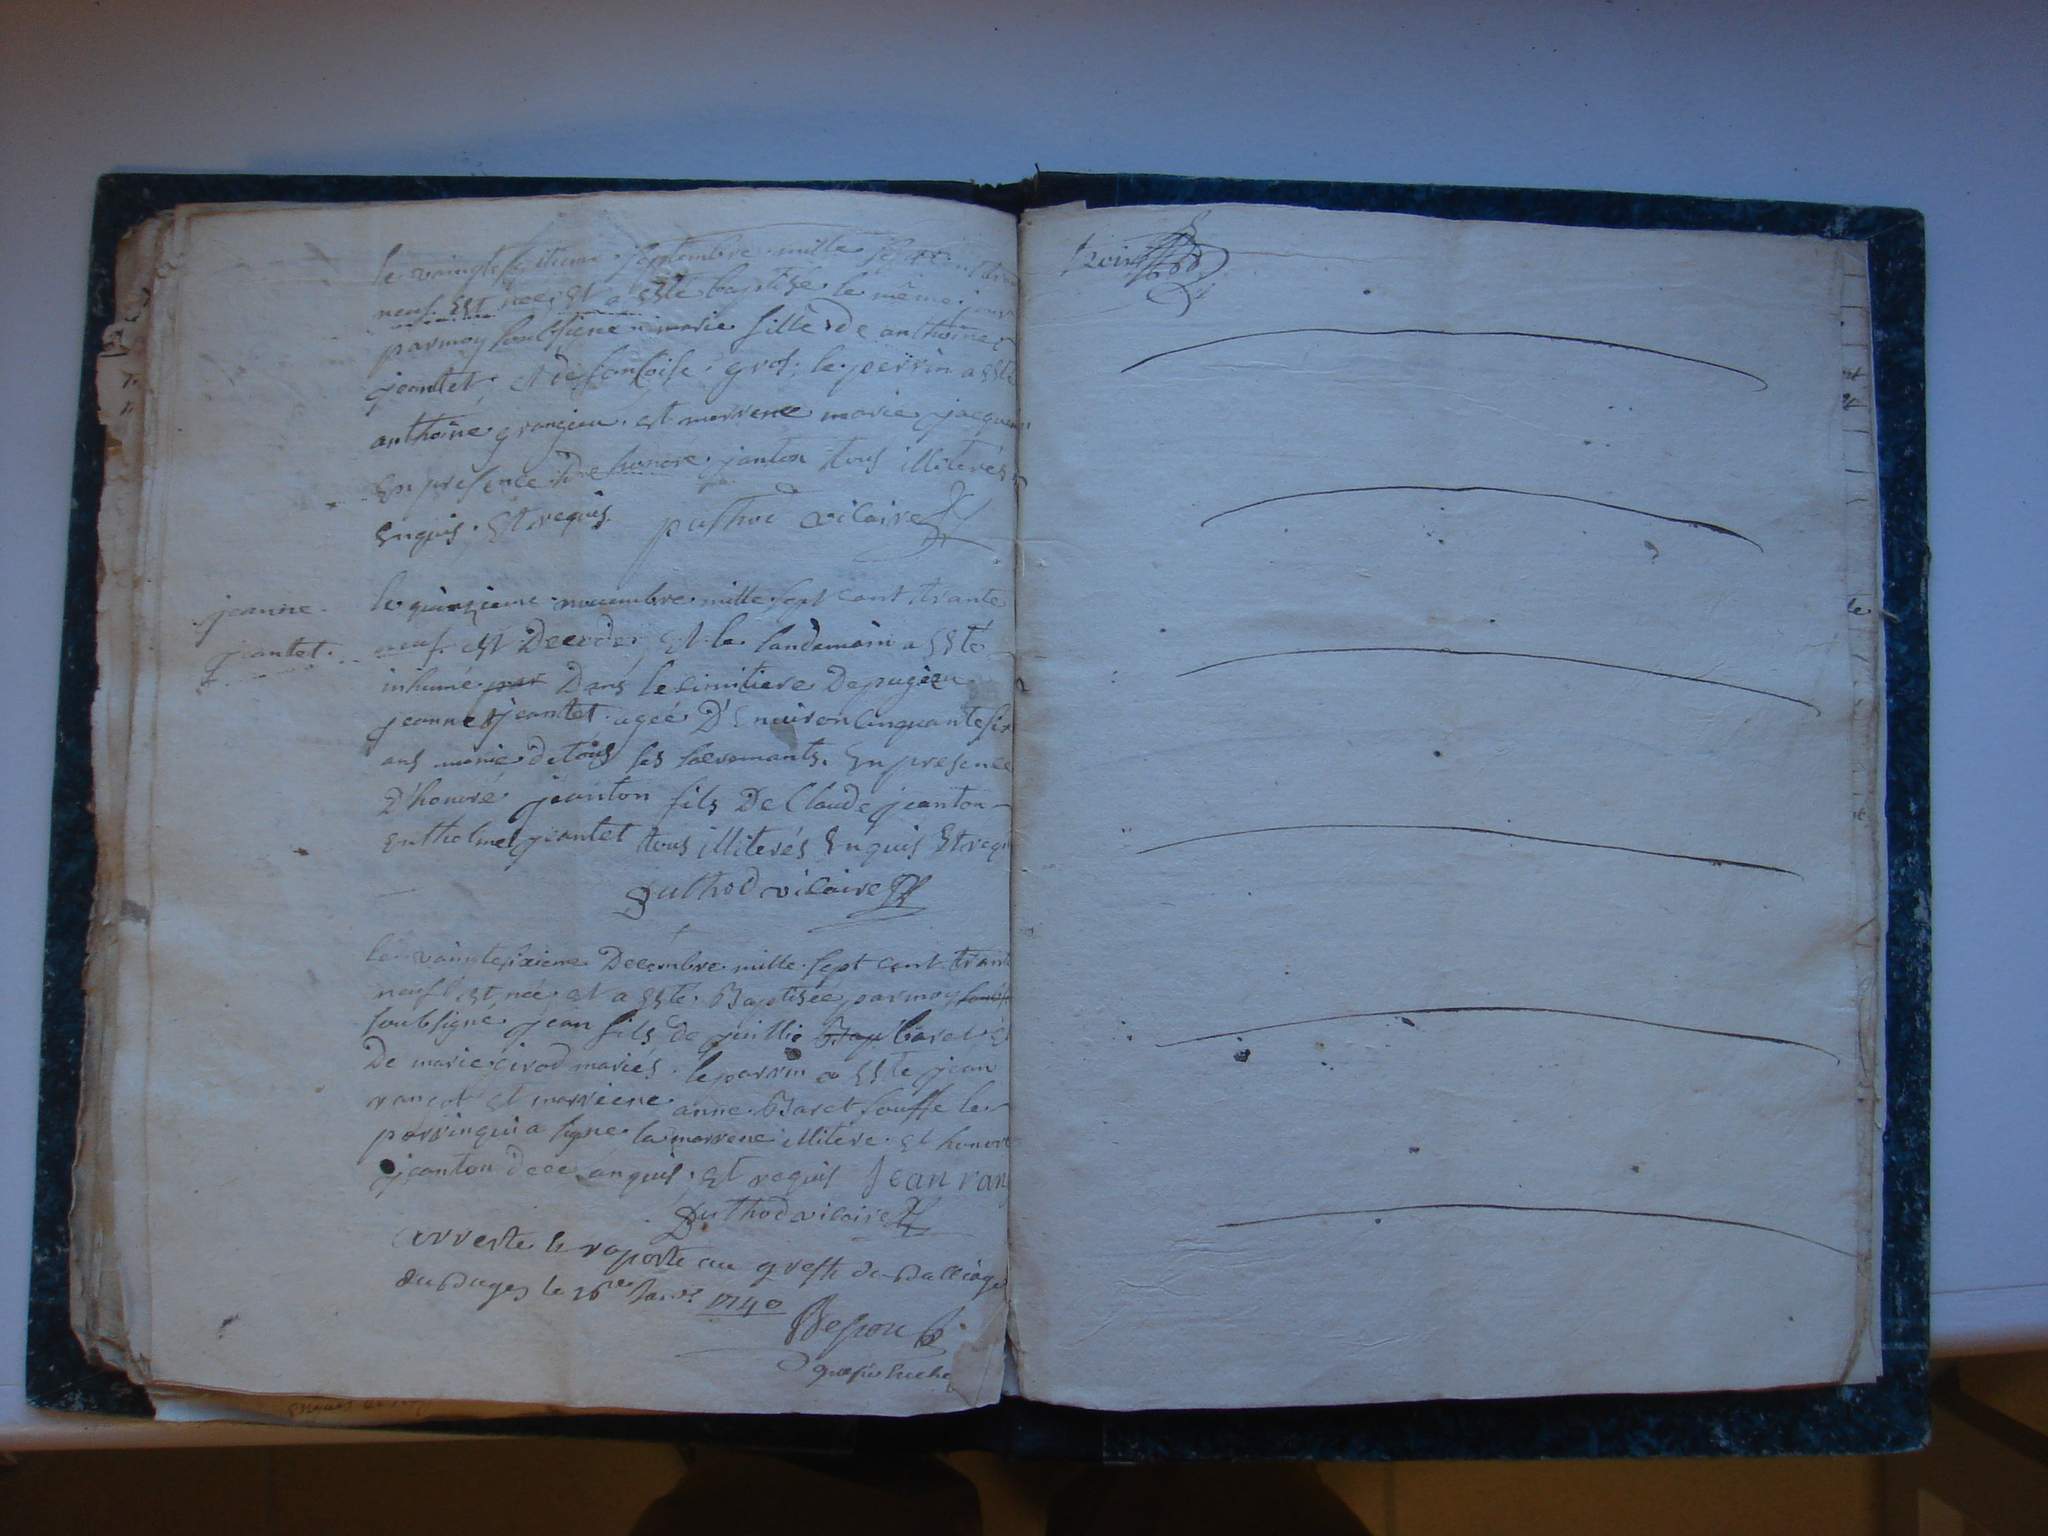 le vaingtseitieme septembre mille sept cent
neuf est nee et a esté baptisé le même jour
parmoy soubsigne marie fille de anthoine
jeantet et de gros le perrin a esté
anthoine granjean et marrene marie
En presence honore janton tous illiterés
Enquis Et requis puthod vicaire
jeanne
jeantet
le quinzieme nouembre mille sept cent trante
neuf est Decede Et le landemain a Esté
inhumé par Dans le cimitiere Depugieu
jeanne jeantet agée D'Enuiron cinquante six
ans munie de tous les sacremants En presence
D'honoré jeanton fils De Claude jeanton
Entholme jeantet tous illiterés Enquis Et requ
puthod vicaire
le vaingtesixieme Decembre mille sept cent trant
neuf est née et a Esté Baptisée parmoy
soubsigne jean fils de baret
De marie girod mariés le parrin a Esté jean
et marriene anne Baret le
parrin qui a signe la marrene illitere Et honore
jeanton enquis et requis Jean ran
puthod vicaire
arreste & raporté au greffe du Balliage
du Bugey le 26 1740